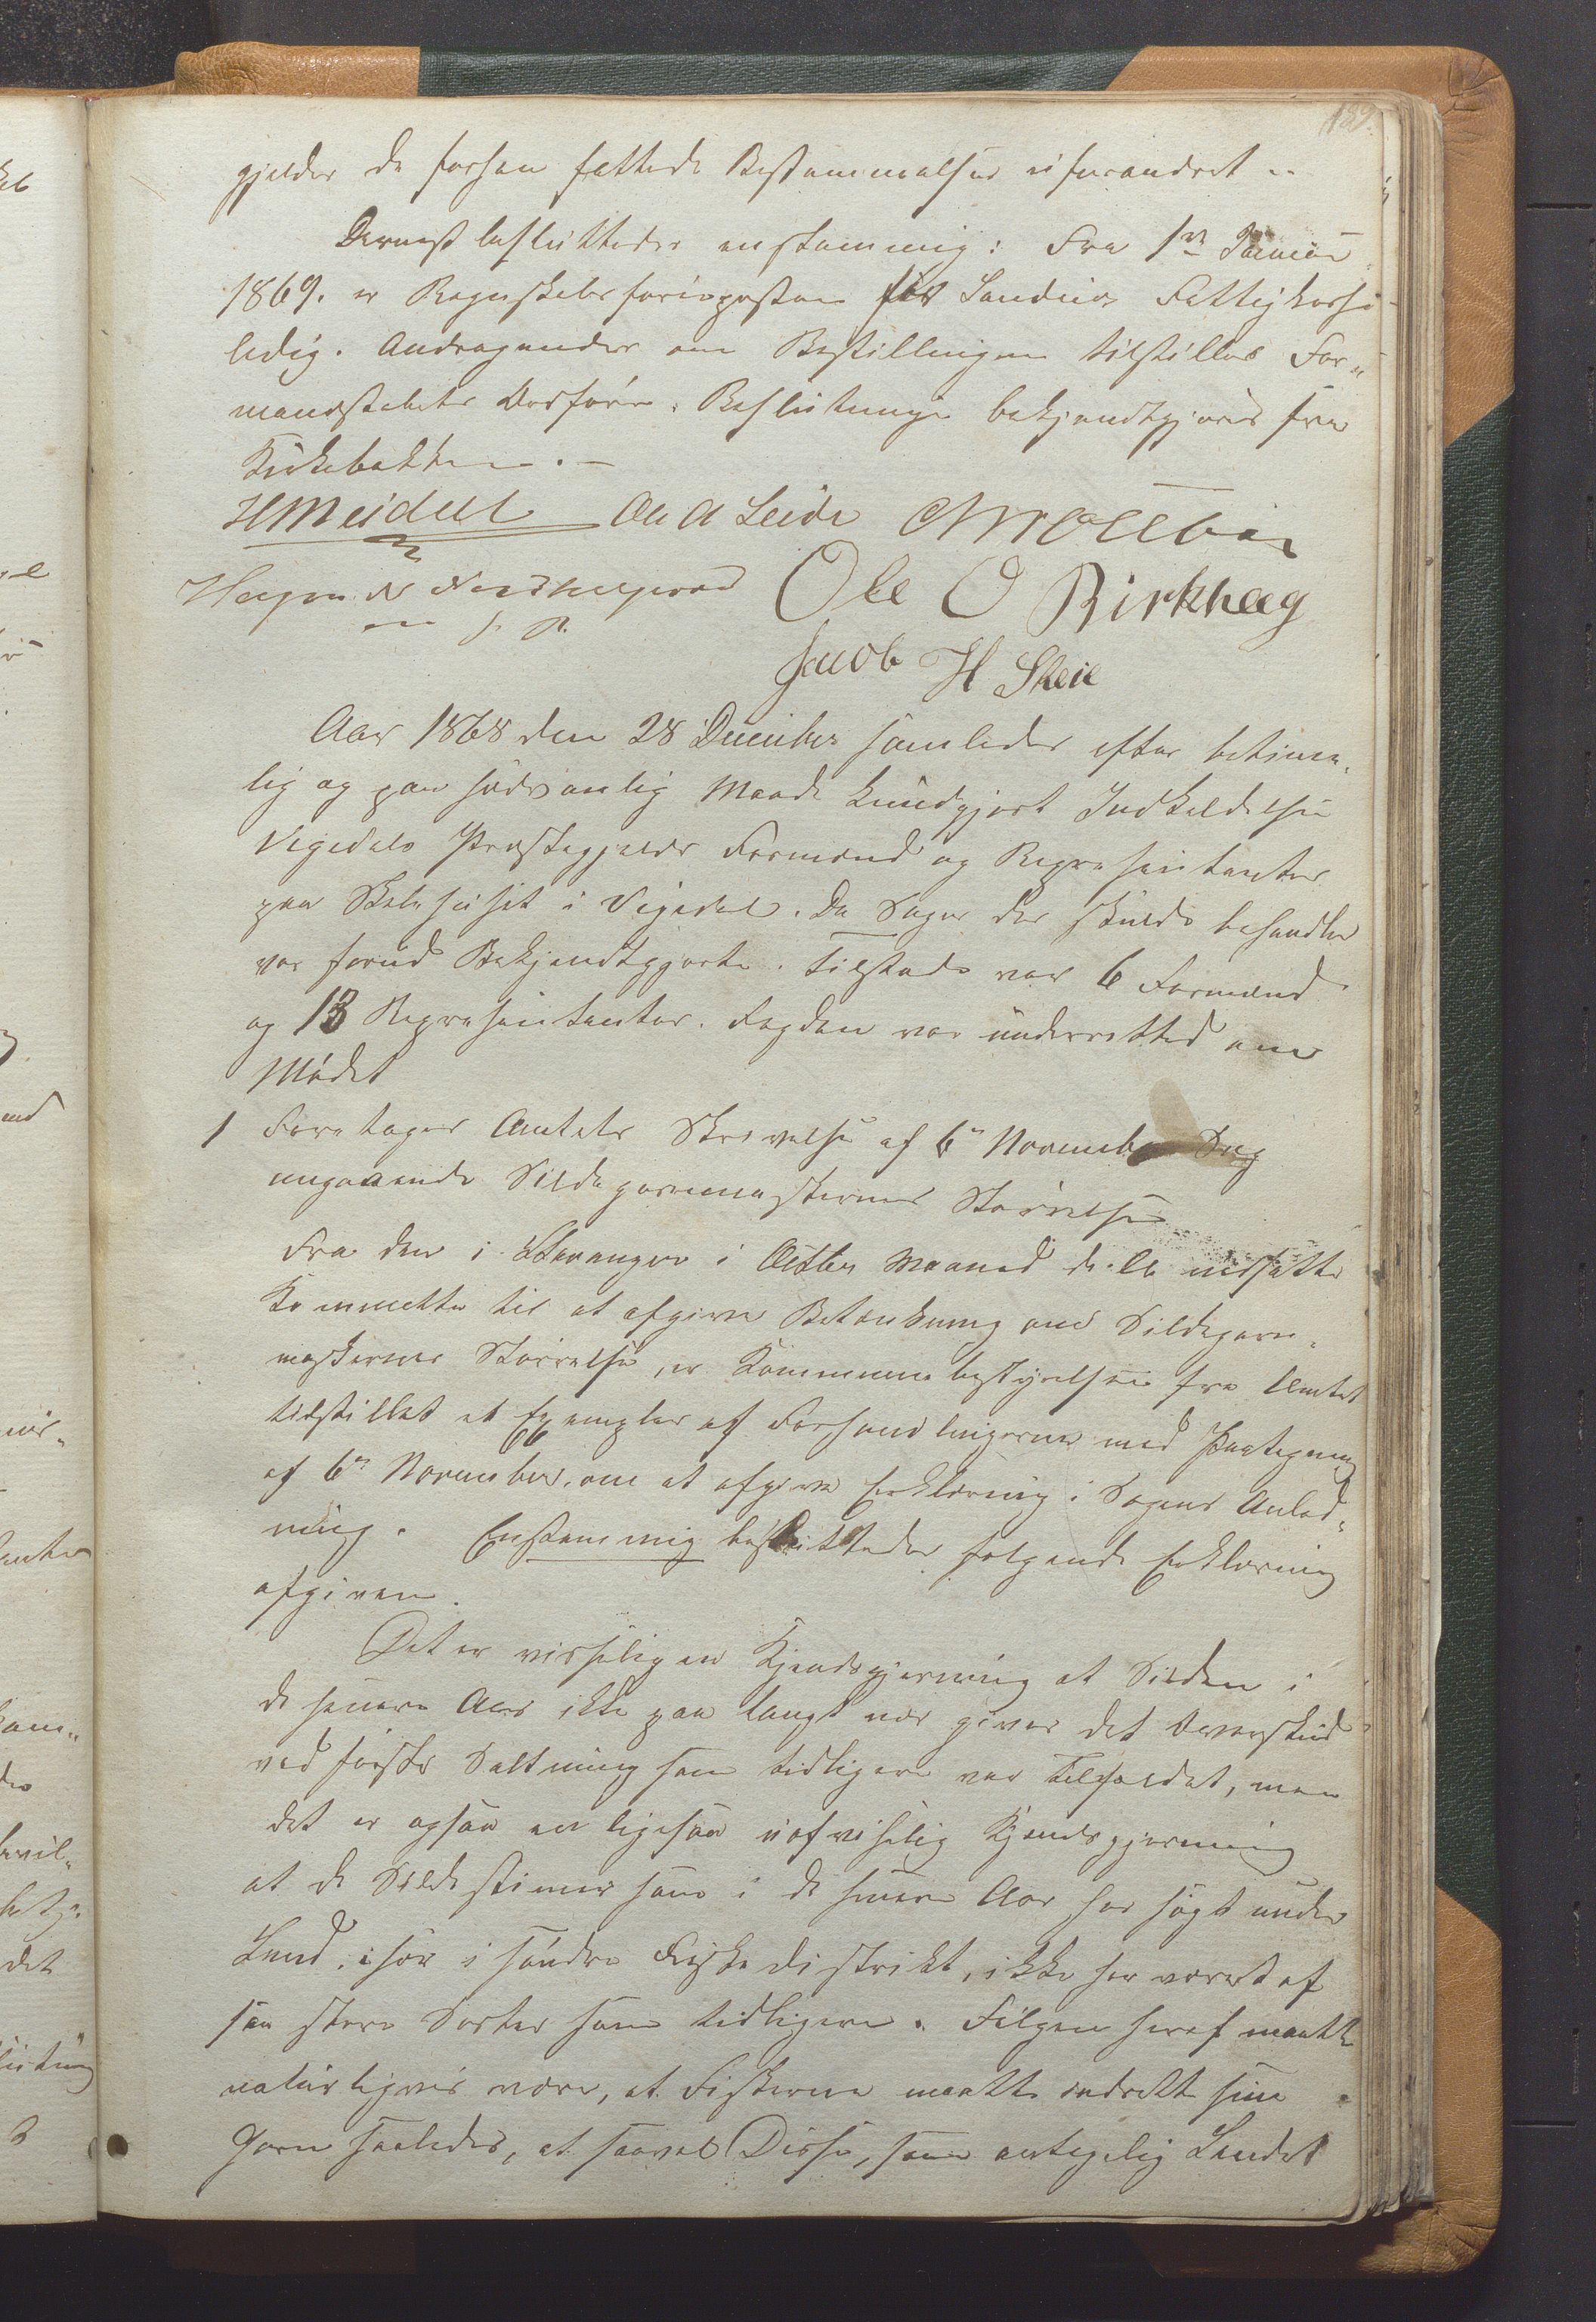 189
gjelder de forhen fattede Bestemmelser uforandret.
Dernest besluttedes enstemmig: Fra 1ste Januar
1869. er Regnskabsførerposten for Sandeids Fattigkasse
ledig. Andragender om Bestillingen tilstilles For„
mandskabets Ordfører. Beslutningen bekjendtgjøres fra
Kirkebakken.–
Ole A Leide
Ole O Birkhaug
Jacob H Skeie
Aar 1868 den 28 December samledes efter betime„
lig og paa sædvanlig Maade kundgjort Indkaldelse
Vigedals Præstegjelds Formænd og Repræsentanter
paa Skolehuset i Vigedal. De Sager der skulde behandles
var forud Bekjendtgjorte. Tilstede var 6 Formænd
og 13 Repræsentanter. Fogden var underrettet om
Mødet
1 Foretoges Amtets Skrivelse af 6te November Sag
angaaende Sildegarnmaskernes Størrelse
Fra den i Stavanger i October Maaned d. A. nedsatte
Kommitte til at afgive Betænkning om Sildegarn„
maskernes Størrelse, er Kommunebestyrelsen fra Amtet
tilstillet et Exemplar af Forhandlingerne med Paategning
af 6te November, om at afgive Erklæring i Sagens Anled„
ning. Enstemmig besluttedes følgende Erklæring
afgiven.
Det er visselig en Kjendsgjerning at Silden i
de senere Aar ikke paa langt nær giver det Overskud
ved første Saltning som tidligere var Tilfældet, men
det er ogsaa en ligesaa uafviselig Kjendsgjerning
at de Sildestimer som i de senere Aar har søgt under
Land, især i søndre Fiskedistrikt, ikke har været af
saa store Sorter som tidligere. Følgen heraf maatte
naturligvis være, at Fiskerne maatte indrette sine
Garn saaledes, at saavel Disse, som Landet